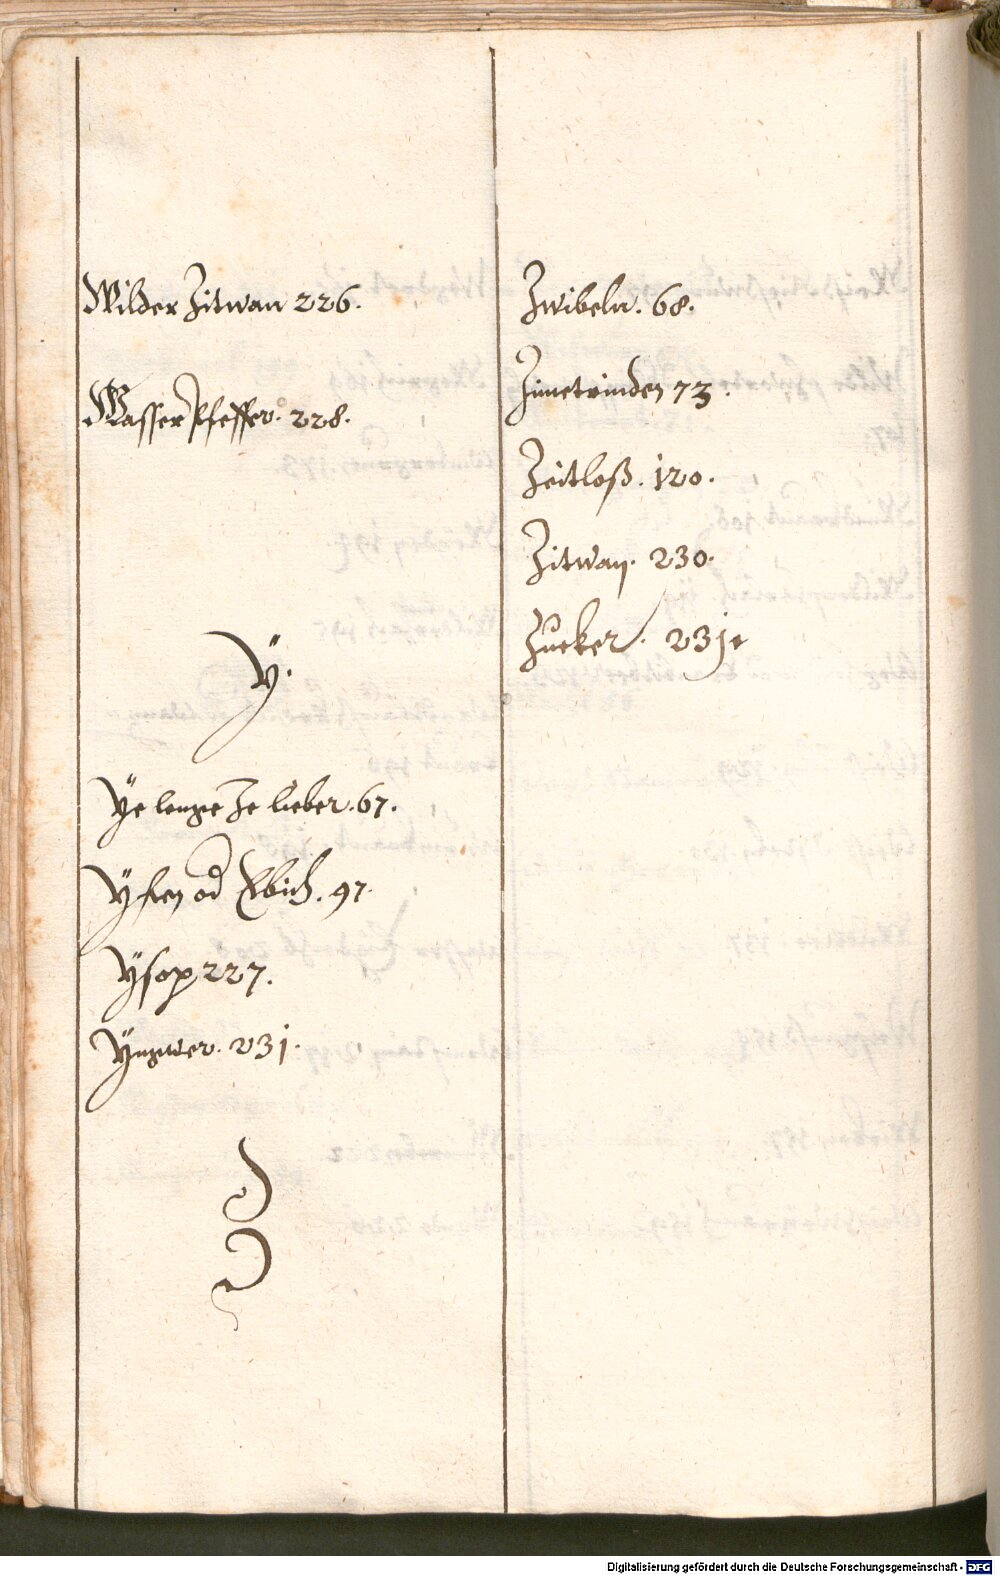 Wilder Zitwan 226.
Wasser Pfeffer. 228.
Ÿ.
Ÿe lenge Je lieber. 67.
Ÿfen od Ebich. 97.
Ÿsop 227.
Ÿngwer. 231.
Z
Zwibeln. 68.
Zimetrinden 73.
Zeitloß. 120.
Zitwan. 230.
Zucker. 231.
Digitalisierung gefördert durch die Deutsche Forschungsgemeinschaft - DFG